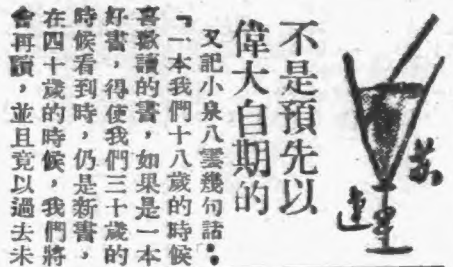 不是預先以
偉大自期的
又記小泉八雲幾句話：
『一本我們十八歲的時候
喜歡讀的書，如果是一本
好書，得使我們三十歲的
時候看到時，仍是新書，
在四十歲的時候，我們將
會再讀，並且竟以過去未